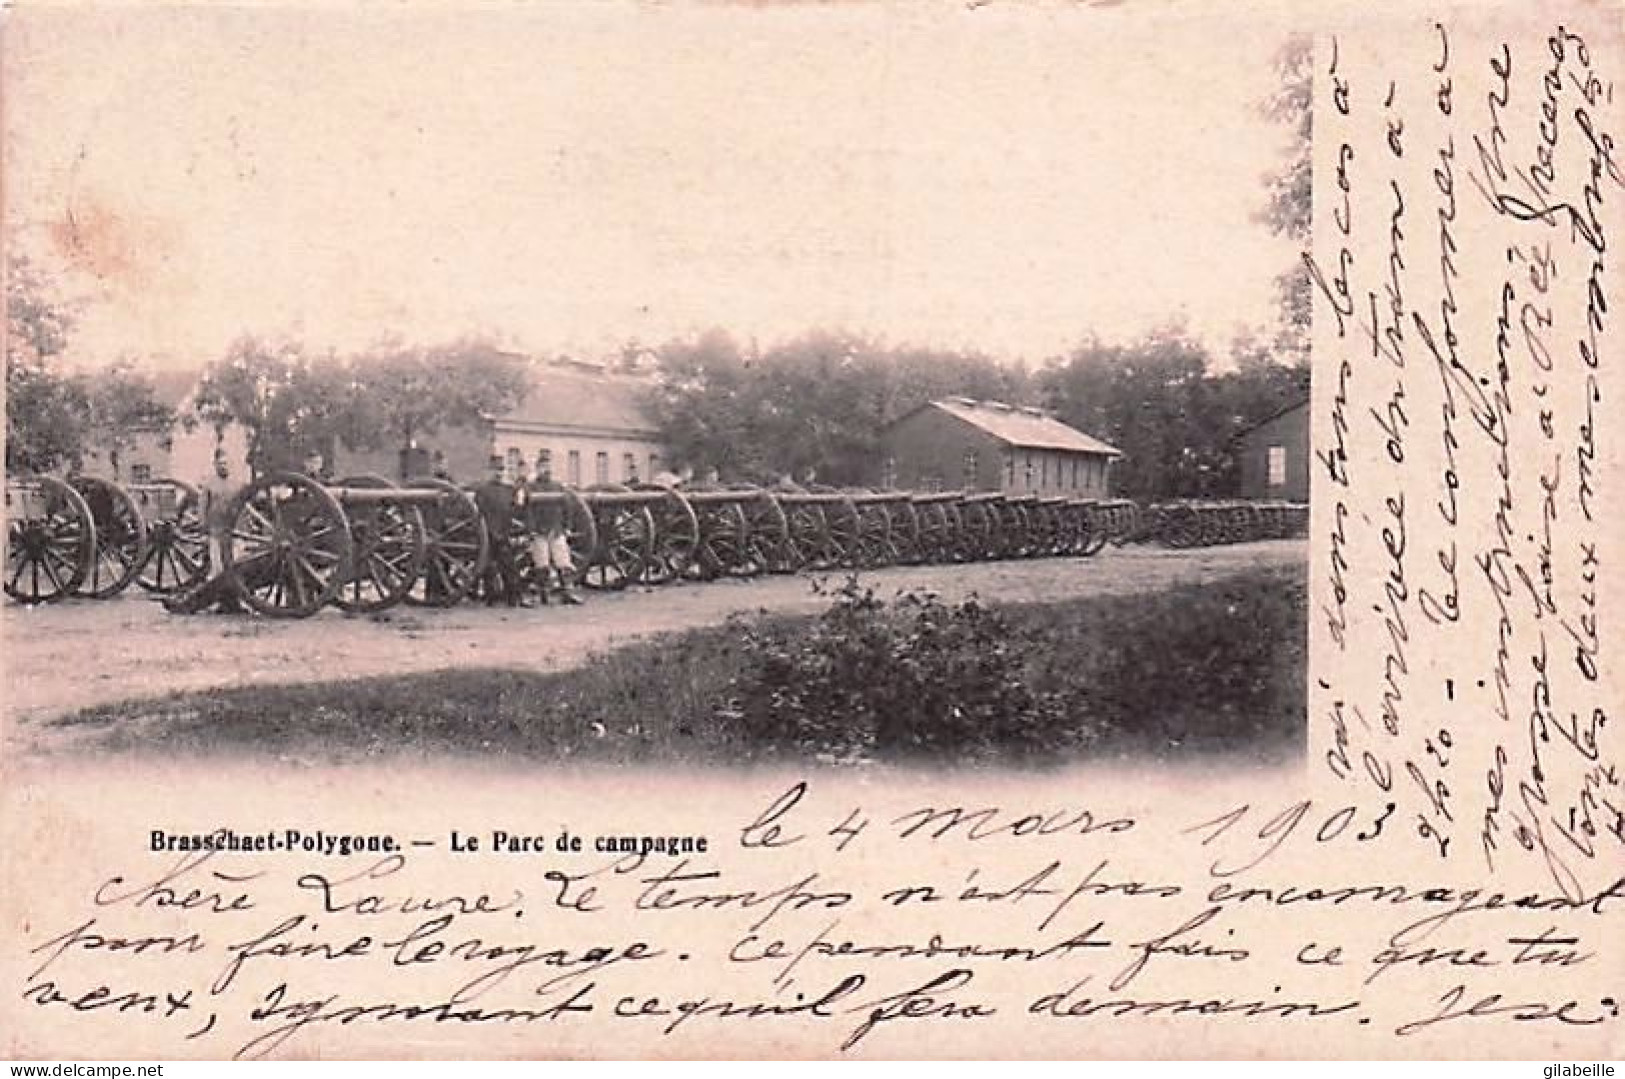 Brasschaet-Polygone. — Le Parc de campagne
le 4 mars 1903
Chère Laure. Le temps n'est pas encourageant
pour faire le voyage. cependant fais ce que tu
veux, ignorant ce qu'il fera demain. Je se-
rai dans tous les cas à
l'arrivée du tram à
2h20 - te conformer à
mes instructions. Une
grosse baise à Reé recevez
toutes deux mes